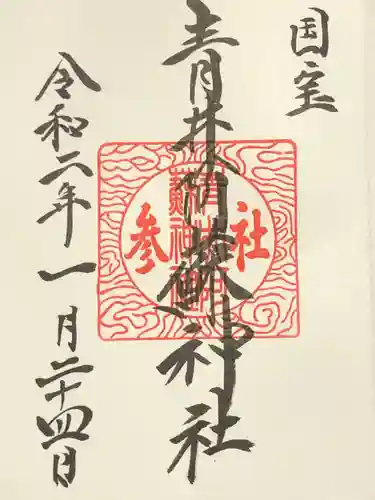 国宝
青井阿蘇神社
社参
青井阿
蘇神社
令和二年一月二十四日